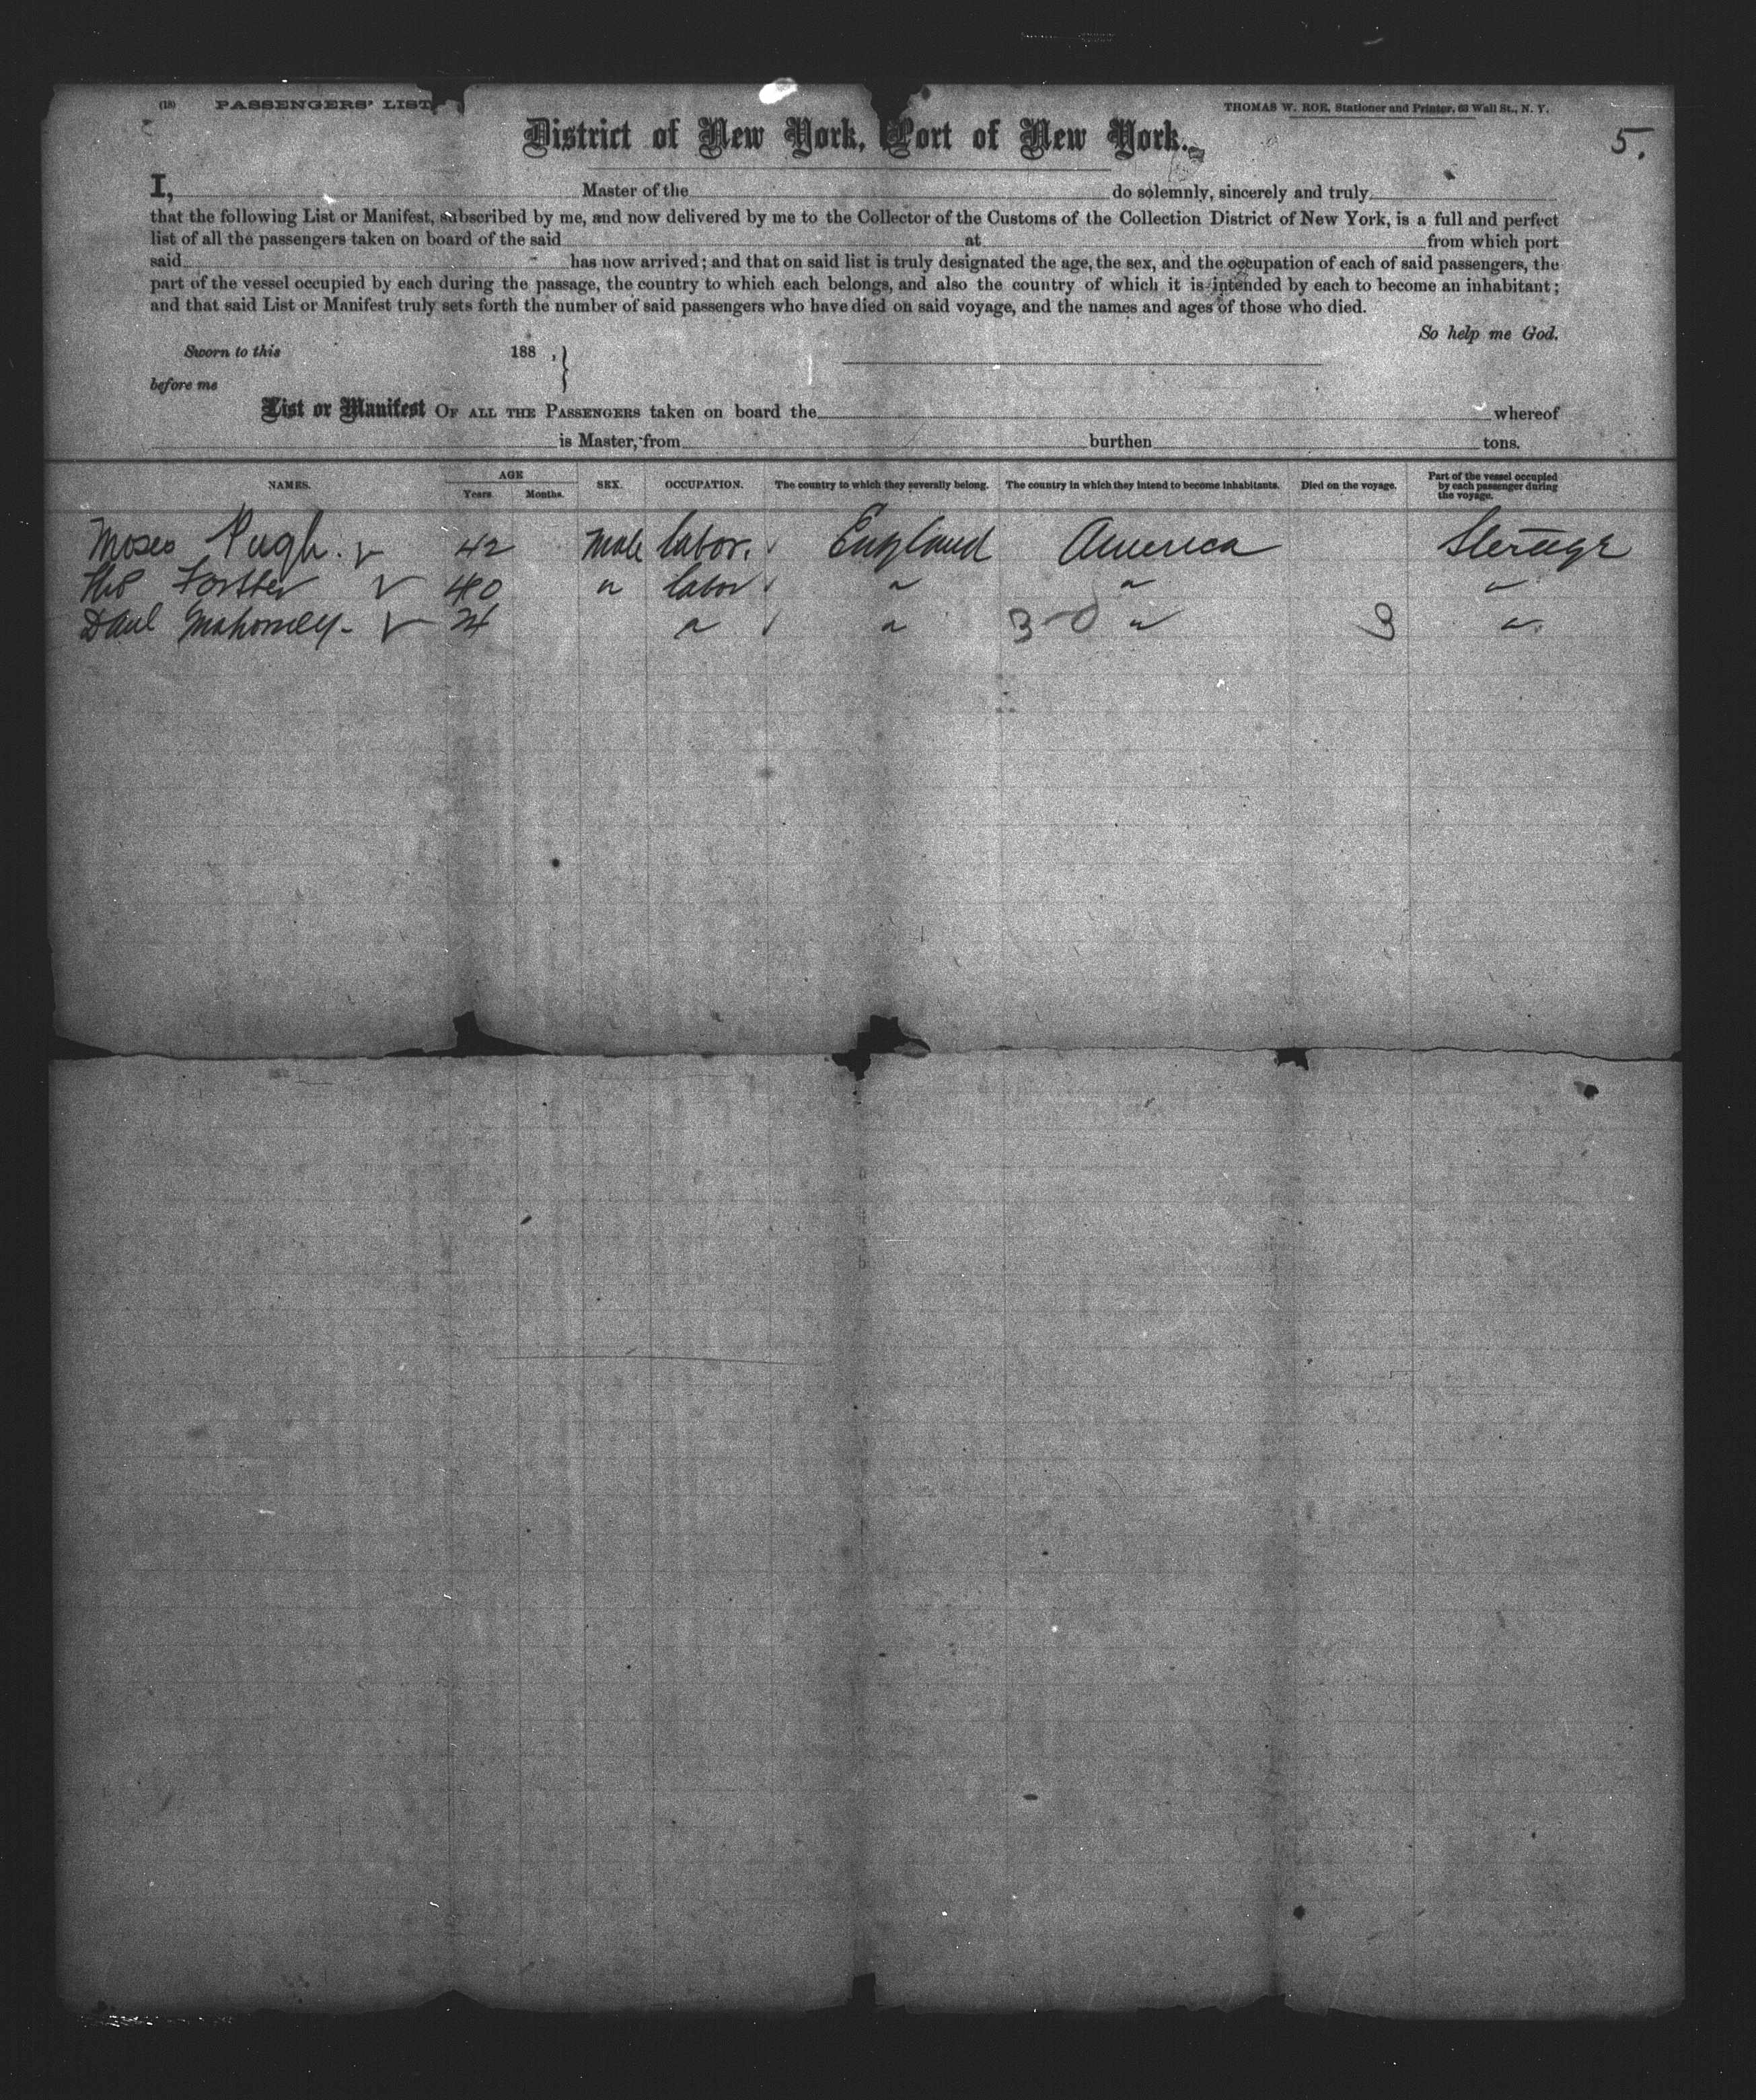 (18) PASSENGERS' LIST
THOMAS W. ROE, Stationer and Printer, 63 Wall St., N. Y.
5.
District of New York, Port of New York.
I, Master of the do solemnly, sincerely and truly
that the following List or Manifest, subscribed by me, and now delivered by me to the Collector of the Customs of the Collection District of New York, is a full and perfect
list of all the passengers taken on board of the said at from which port
said has now arrived; and that on said list is truly designated the age, the sex, and the occupation of each of said passengers, the
part of the vessel occupied by each during the passage, the country to which each belongs, and also the country of which it is intended by each to become an inhabitant;
and that said List or Manifest truly sets forth the number of said passengers who have died on said voyage, and the names and ages of those who died.
So help me God.
Sworn to this 188 ,}
before me
List or Manifest OF ALL THE PASSENGERS taken on board the whereof
is Master, from burthen tons.
NAMES. AGE Years. Months. SEX. OCCUPATION. The country to which they severally belong. The country in which they intend to become inhabitants. Died on the voyage. Part of the vessel occupied by each passenger during the voyage.
Moses Pugh. 42 Male labor. England America Sterage
Tho Forster 40 " labor " " "
Danl Mahomey - " " 3-0 " 3 "